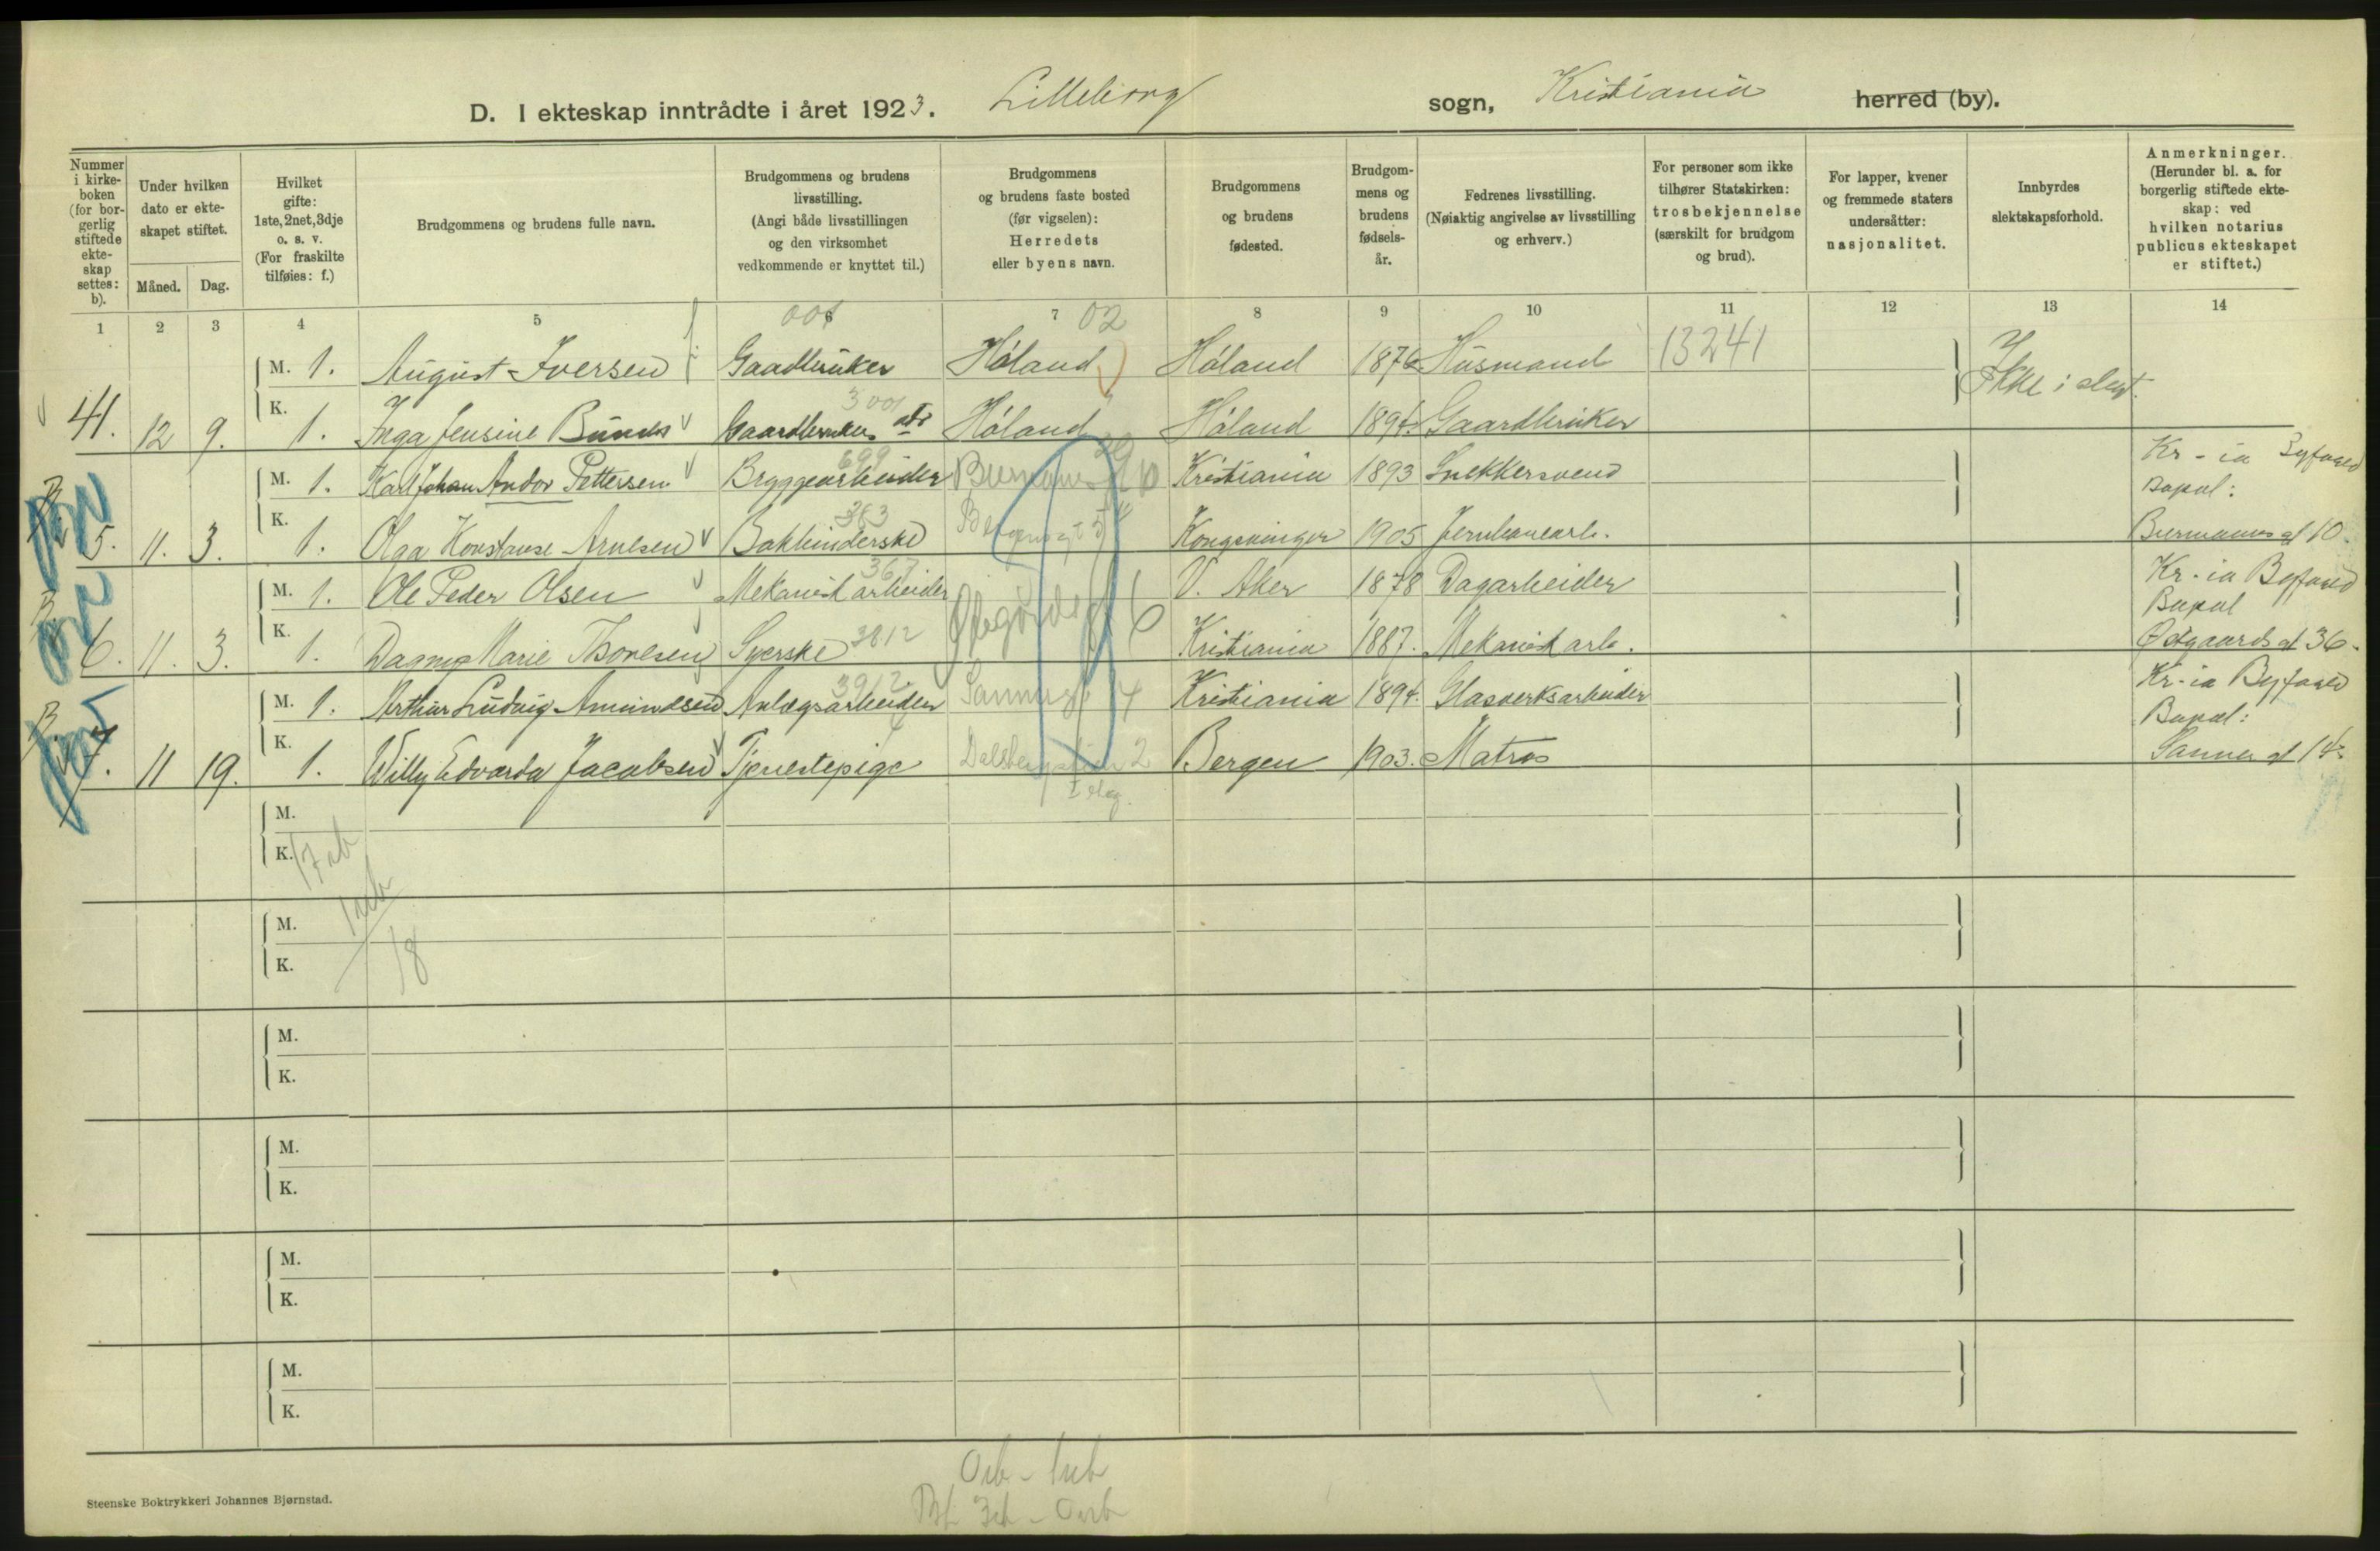 D. I ekteskap inntrådte i året 1923. Lilleborg sogn, Kristiania herred (by).
Nummer i kirkeboken (for borgerlig stiftede ekteskap settes: b).
Under hvilken dato er ekteskapet stiftet.
Måned. Dag.
Hvilket gifte: 1ste, 2net, 3dje o. s. v. (For fraskilte tilføies: f.)
Brudgommens og brudens fulle navn.
Brudgommens og brudens livsstilling. (Angi både livsstillingen og den virksomhet vedkommende er knyttet til.)
Brudgommens og brudens faste bosted (før vigselen): Herredets eller byens navn.
Brudgommens og brudens fødested.
Brudgommens og brudens fødselsår.
Fedrenes livsstilling. (Nøiaktig angivelse av livsstilling og erhverv.)
For personer som ikke tilhører Statskirken: trosbekjennelse (særskilt for brudgom og brud).
For lapper, kvener og fremmede staters undersåtter: nasjonalitet.
Innbyrdes slektskapsforhold.
Anmerkninger. (Herunder bl. a. for borgerlig stiftede ekteskap: ved hvilken notarius publicus ekteskapet er stiftet.)
1 2 3 4 5 6 7 8 9 10 11 12 13 14
001 02
M. 1. August Iversen Gaadbruker Høland Høland 1876 Husmand 13241 Ikke i slegt.
3001
41. 12 9. K. 1. Inga Jensine Bunes Gaardbruker dtr Høland Høland 1894. Gaardbruker
699
M. 1. Karl Johan Andor Pettersen Bryggearbeider Biermanns gt 10 Kristiania 1893 Snekkersvend Kr-ia Byfoged
Bopæl:
383
5. 11. 3. K. 1. Olga Konstanse Arnesen Bokbinderske Kongsvinger 1905 Jernbanearb. Biermanns gt 10.
367
M. 1. Ole Peder Olsen Mekanisk arbeider V. Aker 1878 Dagarbeider Kr-ia Byfoged
Bopæl
6. 11. 3. K. 1. Dagny Marie Thoresen Syerske 3812 Kristiania 1887. Mekanisk arb. Østgaards gt 36.
3912
M. 1. Arthur Ludvig Amundsen Anlægsarbeider Sannergt 14 Kristiania 1894. Glasverksarbeider Kr-ia Byfoged
Bopæl:
7. 11 19. K. 1. Willy Edvarda Jacobsen Tjenestepige Bergen 1903. Matros Sanner gt 14.
M.
K. 17 ab
M.
K. 18
M.
K.
M.
K.
M.
K.
M.
K.
Steenske Boktrykkeri Johannes Bjørnstad.